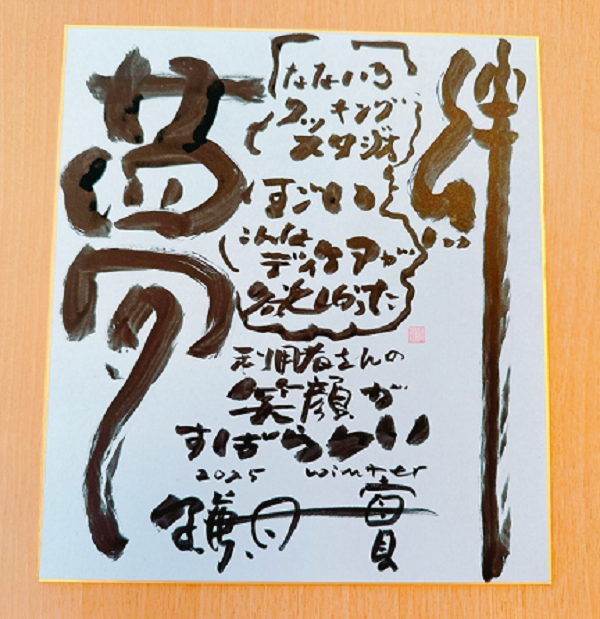 絆
なないろ
クッキング
スタジオ
すごい
こんな
デイケアが
欲しかった
利用者さんの
笑顔が
すばらしい
2025 winter
夢